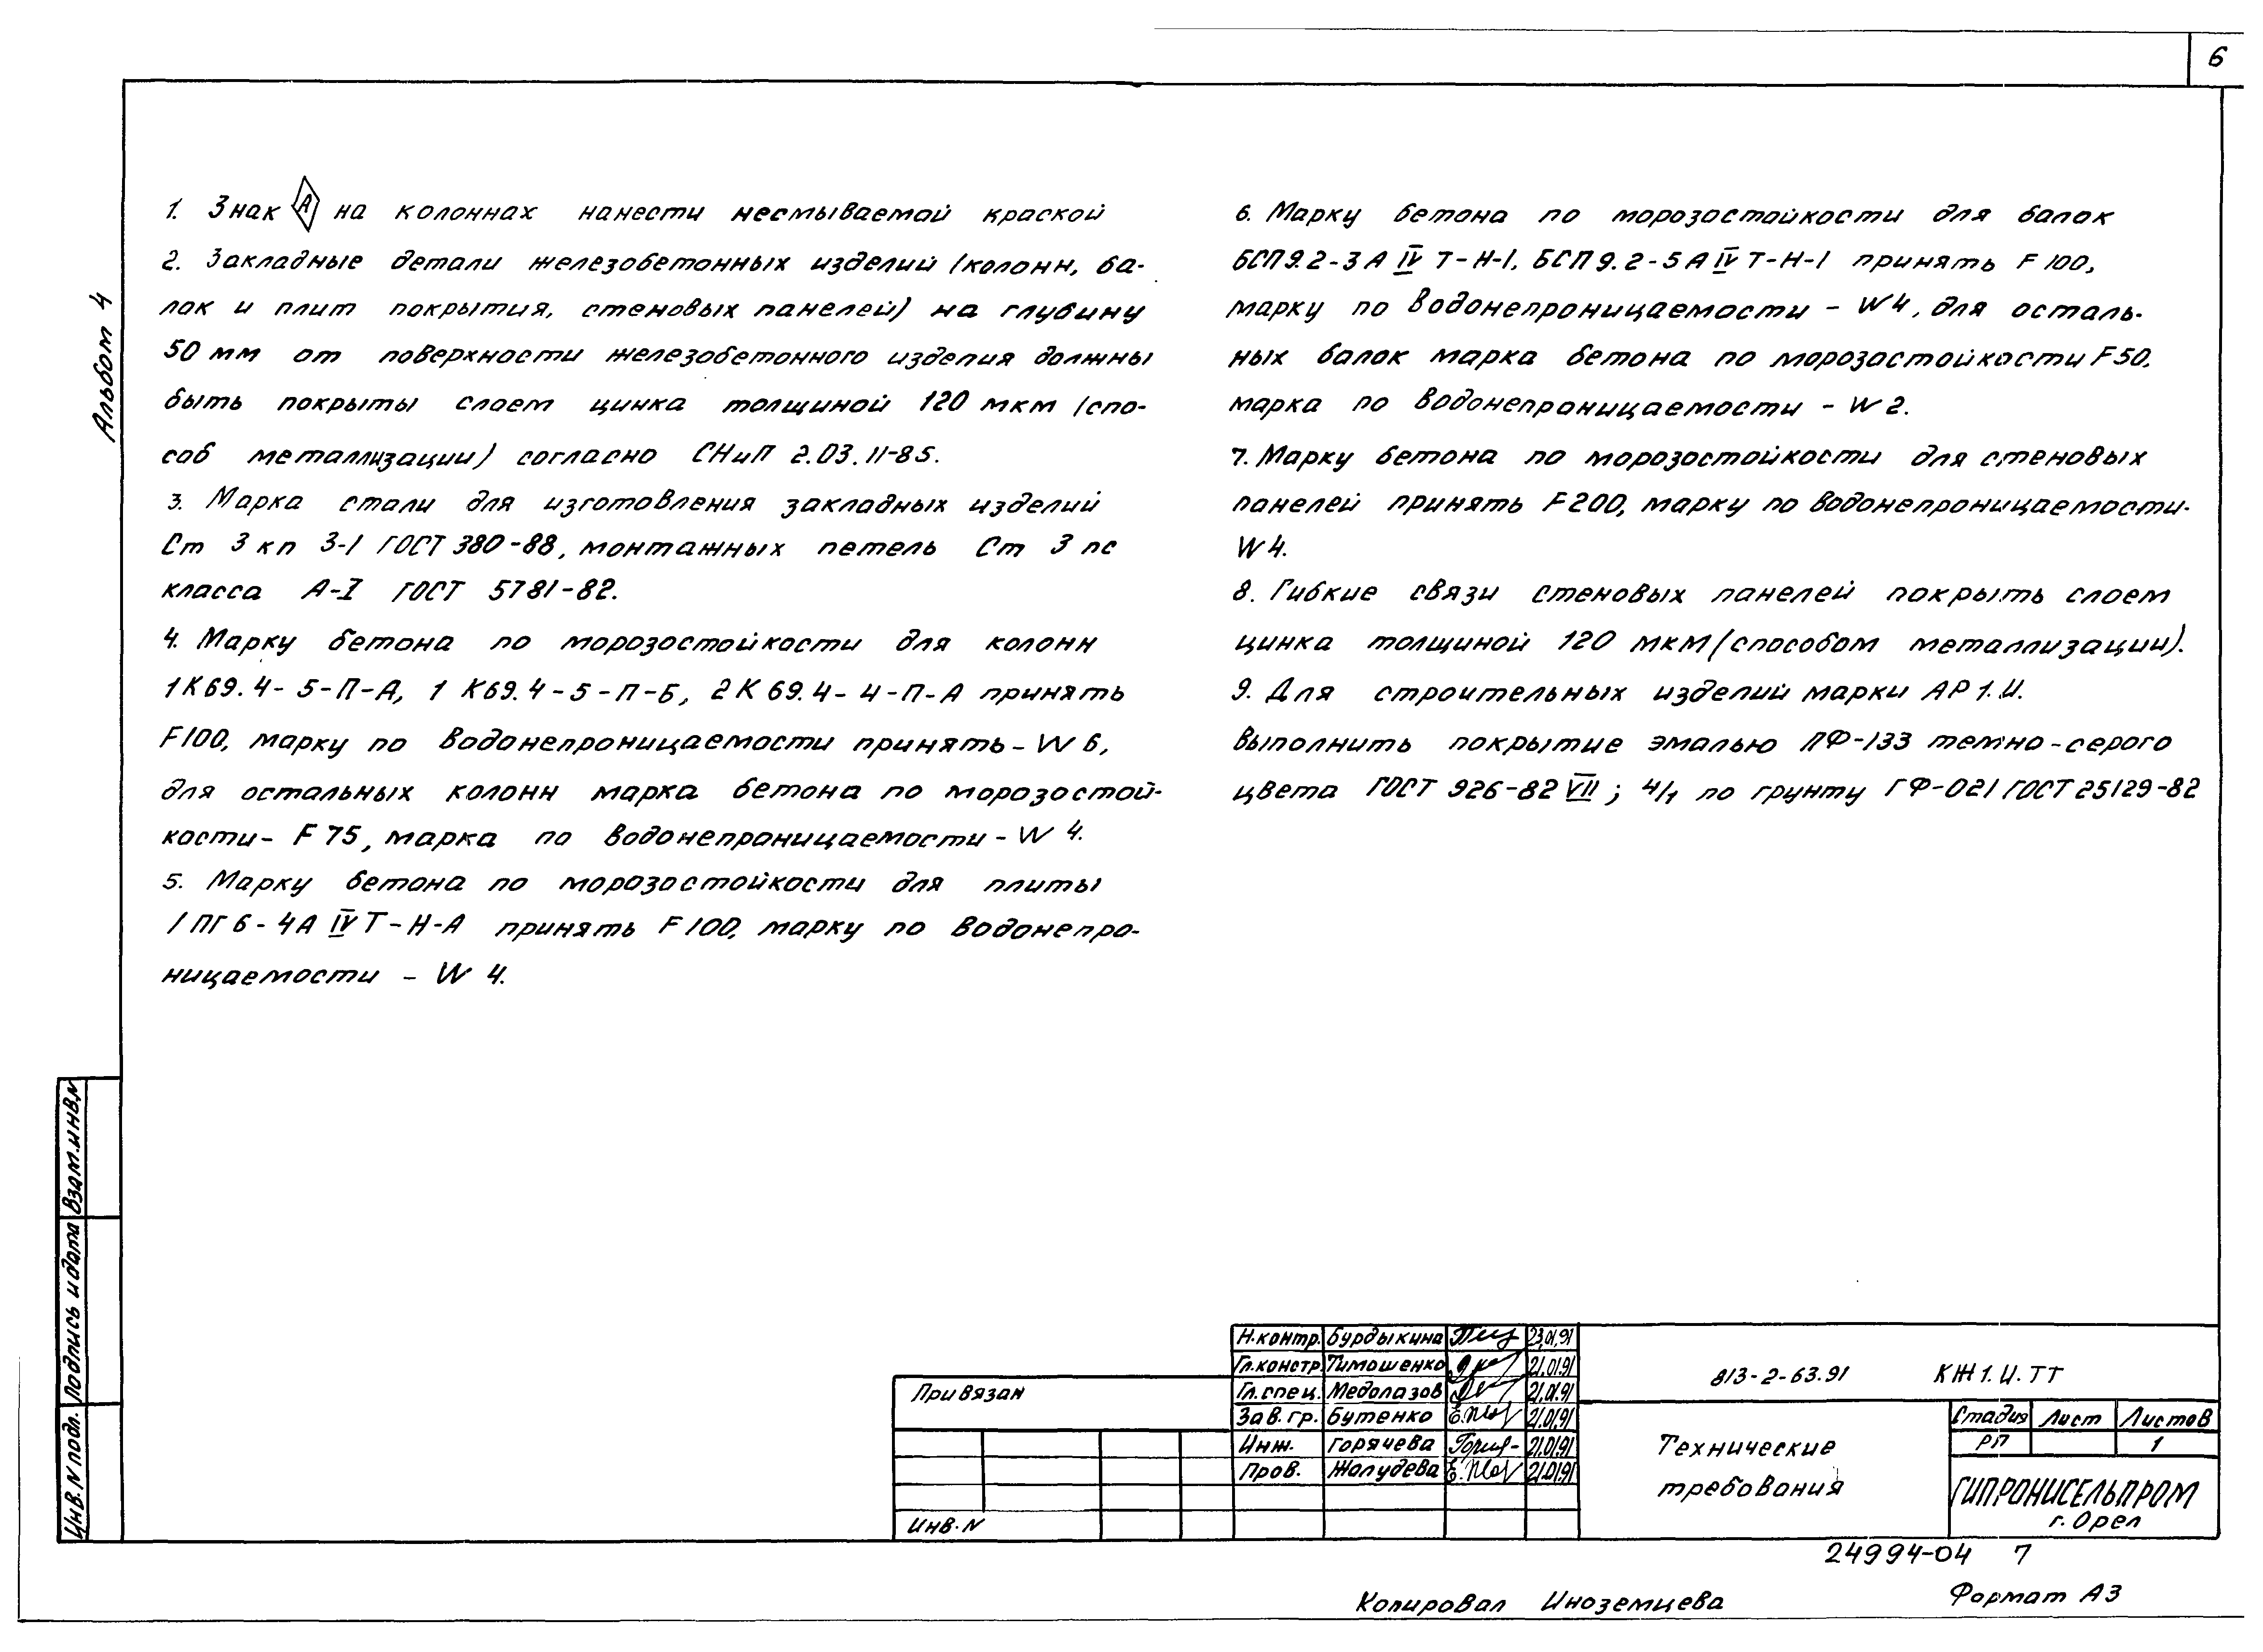 6
Альбом 4
1. Знак А на колоннах нанести несмываемой краской
2. Закладные детали железобетонных изделий (колонн, ба-
лок и плит покрытия, стеновых панелей) на глубину
50 мм от поверхности железобетонного изделия должны
быть покрыты слоем цинка толщиной 120 мкм (спо-
соб металлизации) согласно СНиП 2.03.11-85.
3. Марка стали для изготовления закладных изделий
Ст 3 кп 3-1 ГОСТ 380-88, монтажных петель Ст 3 пс
класса А-I ГОСТ 5781-82.
4. Марку бетона по морозостойкости для колонн
1К69.4-5-П-А, 1К69.4-5-П-Б, 2К69.4-4-П-А принять
F100, марку по водонепроницаемости принять - W6,
для остальных колонн марка бетона по морозостой-
кости - F75, марка по водонепроницаемости - W 4.
5. Марку бетона по морозостойкости для плиты
1ПГ6-4А IV Т-Н-А принять F100, марку по водонепро-
ницаемости - W 4.
6. Марку бетона по морозостойкости для балок
БСП9.2-3А IV Т-Н-1, БСП9.2-5А IV Т-Н-1 принять F100,
марку по водонепроницаемости - W4, для осталь-
ных балок марка бетона по морозостойкости F50,
марка по водонепроницаемости - W2.
7. Марку бетона по морозостойкости для стеновых
панелей принять F200, марку по водонепроницаемости-
W4.
8. Гибкие связи стеновых панелей покрыть слоем
цинка толщиной 120 мкм (способом металлизации).
9. Для строительных изделий марки АР1.И.
выполнить покрытие эмалью ПФ-133 темно-серого
цвета ГОСТ 926-82 VII; 4/1 по грунту ГФ-021 ГОСТ 25129-82
Взам.инв.N
Подпись и дата
Инв.N подл.
Привязан
Инв.N
Н.контр. Бурдыкина 23.01.91
Гл.констр. Тимошенко 21.01.91
Гл.спец. Медолазов 21.01.91
Зав.гр. Бутенко 21.01.91
Инж. Горячева 21.01.91
Пров. Жолудева 21.01.91
813-2-63.91 КЖ1.И.ТТ
Технические
требования
Стадия Лист Листов
РП 1
ГИПРОНИСЕЛЬПРОМ
г. Орел
24994-04 7
Копировал Иноземцева Формат А3